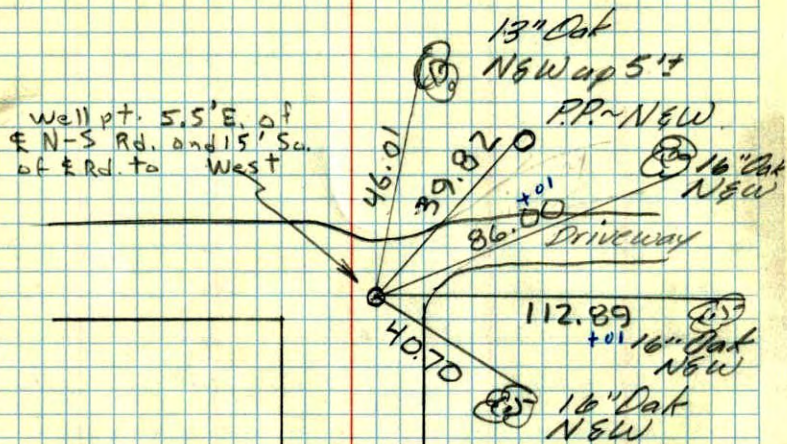 13" Oak
N&W up 5'±
P.P. ~ N&W
well pt. 5.5' E. of
℄ N-S Rd. and 15' So.
of ℄ Rd. to West
46.01
39.82
16" Oak
N&W
+01
86.00
Driveway
112.89
+01
16" Oak
N&W
40.70
16" Oak
N&W